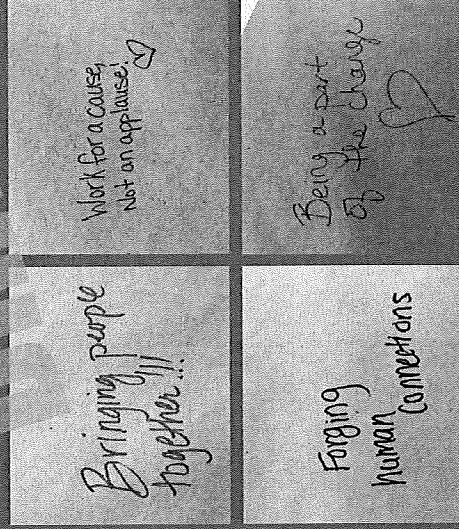 Bringing people
together!!!
Work for a cause,
Not an applause!
Forging
human
connections
Being a part
of the change